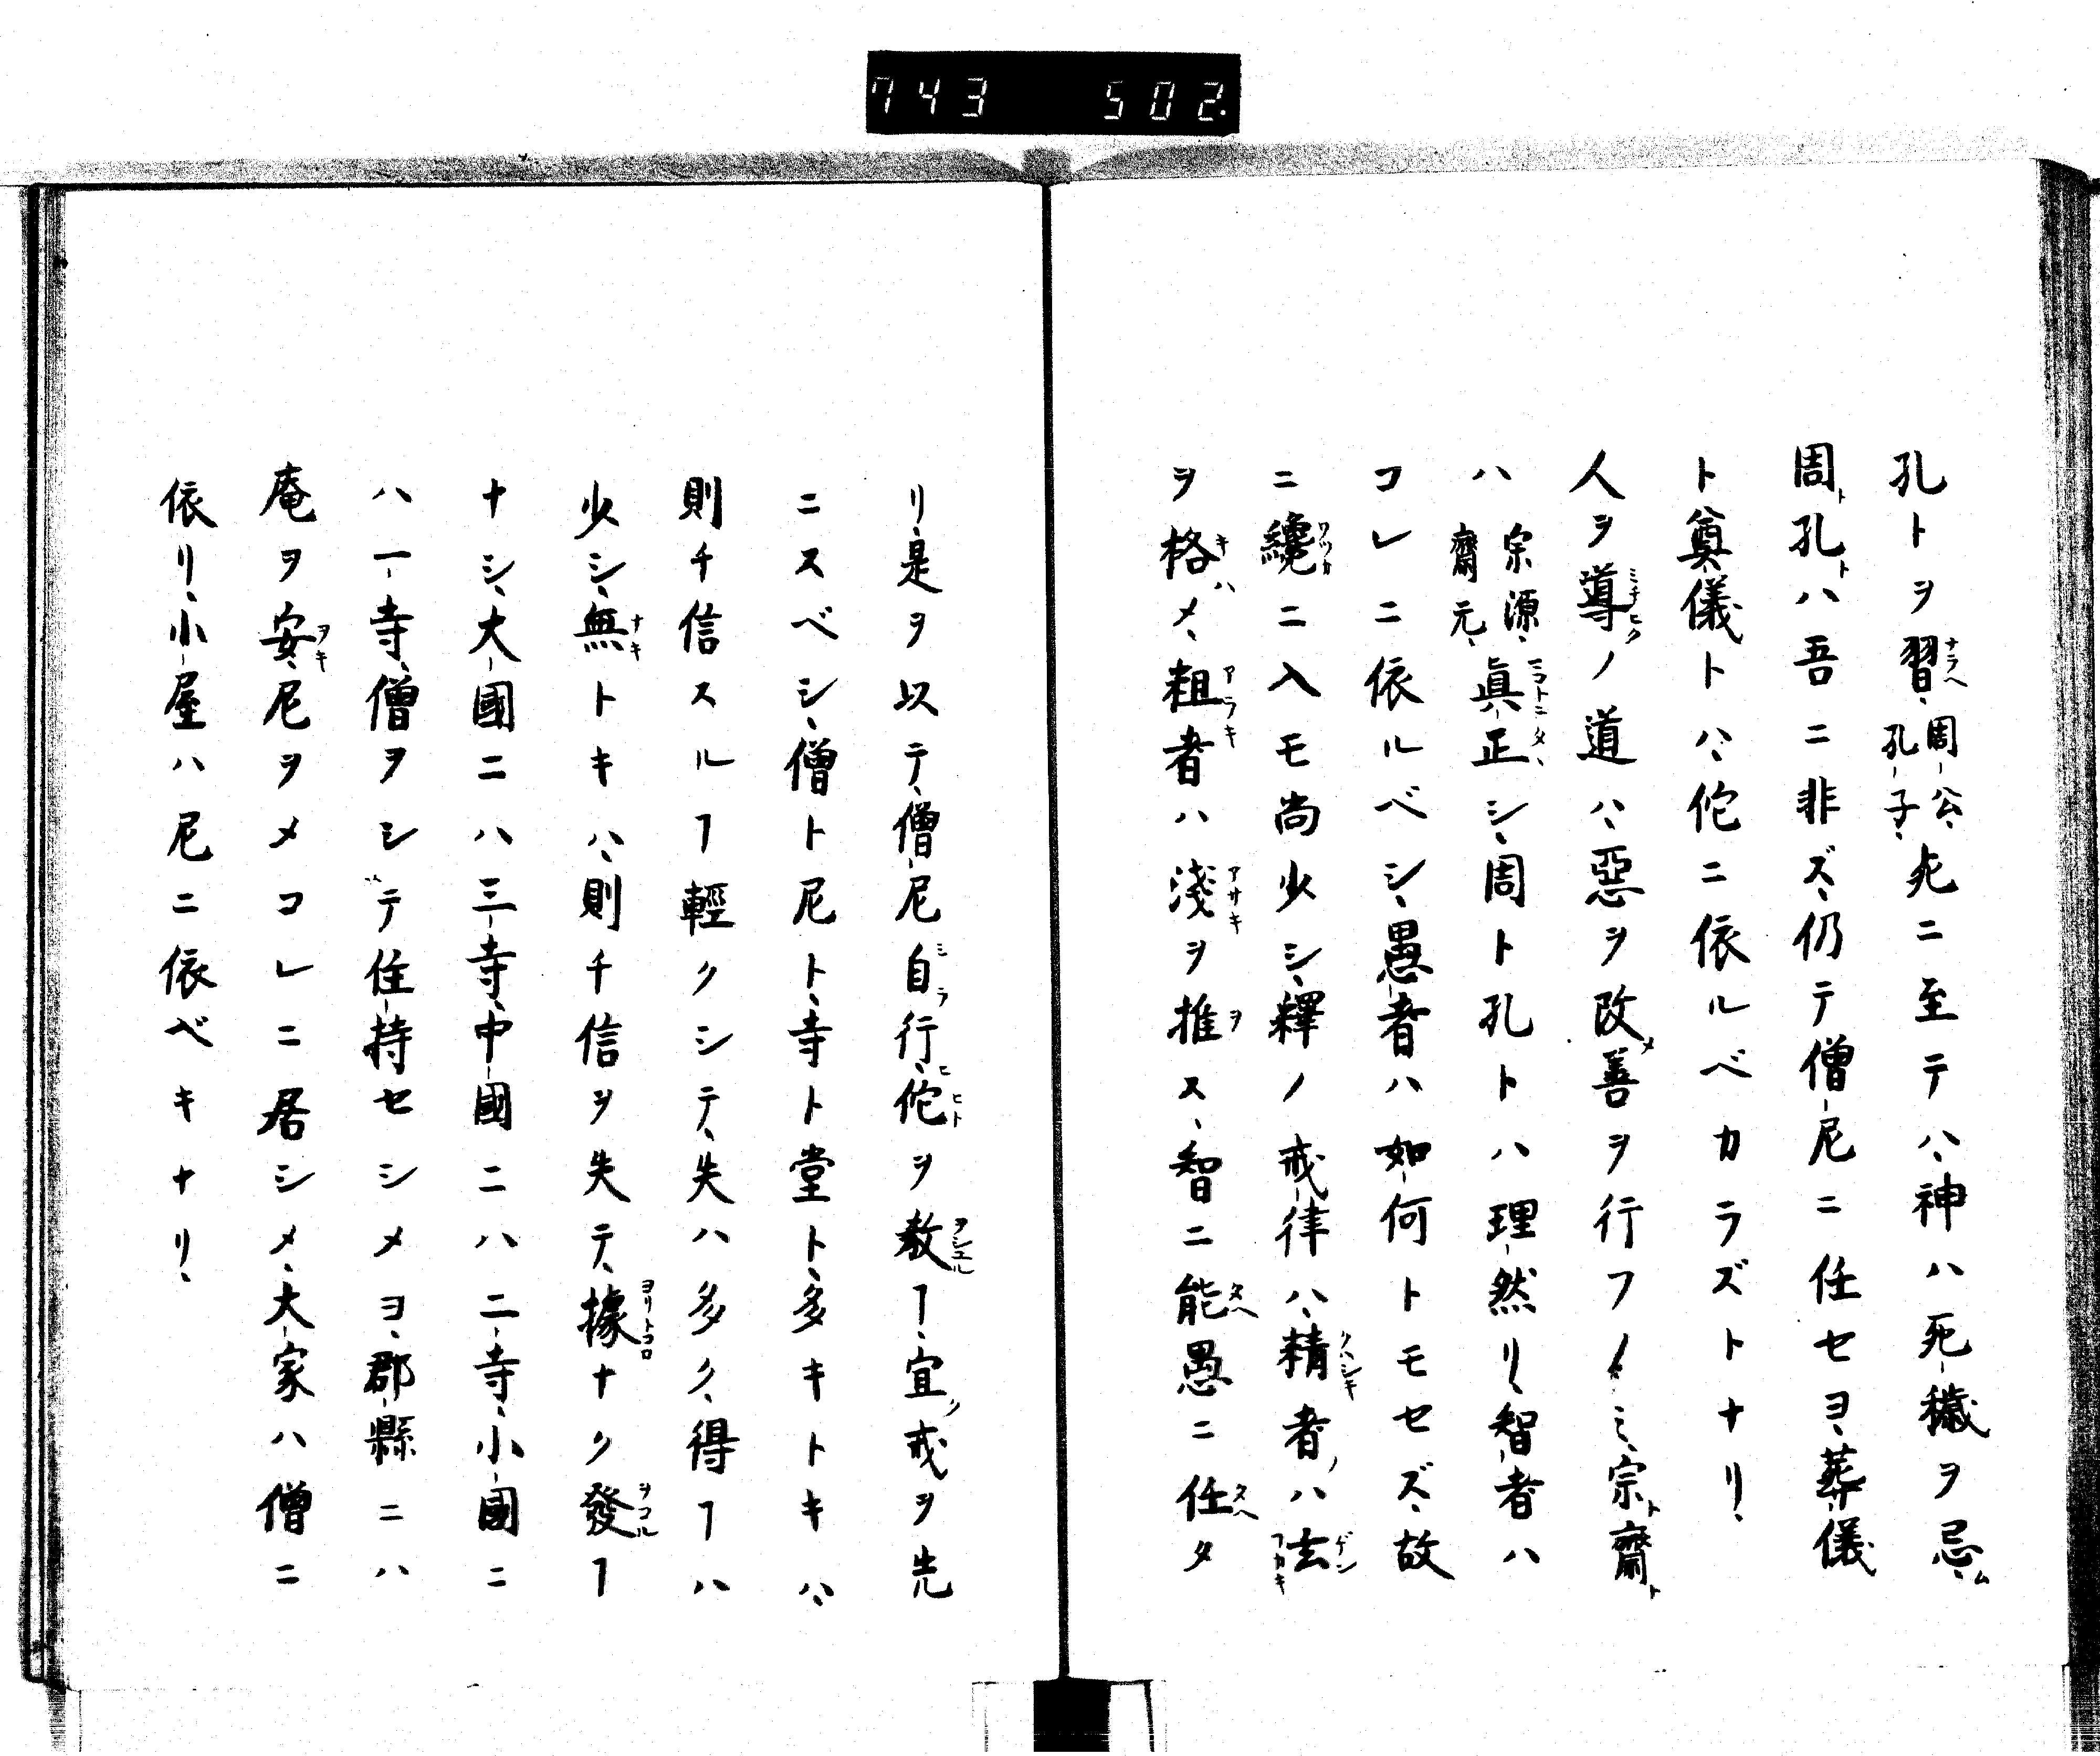 743 502.
孔トヲ習、周公、孔子、死ニ至テハ、神ハ死穢ヲ忌、
周孔ハ吾ニ非ズ、仍テ僧尼ニ任セヨ、葬儀
ト奠儀トハ、佗ニ依ルベカラズトナリ、
人ヲ導ノ道ハ、惡ヲ改善ヲ行フノミ、宗齋
ハ宗源、齋元、眞正シ、周ト孔トハ理然リ、智者ハ
コレニ依ルベシ、愚者ハ如何トモセズ、故
ニ纔ニ入モ尚少シ、釋ノ戒律ハ、精者ハ玄
ヲ格メ、粗者ハ淺ヲ推ス、智ニ能愚ニ任タ
リ、是ヲ以テ、僧尼自行、佗ヲ教ヿ、宜戒ヲ先
ニスベシ、僧ト尼ト、寺ト堂ト、多キトキハ、
則チ信スルヿ輕クシテ、失ハ多ク、得ヿハ
少シ、無トキハ、則チ信ヲ失テ、據ナク發ヿ
ナシ、大國ニハ三寺、中國ニハ二寺、小國ニ
ハ一寺、僧ヲシテ住持セシメヨ、郡縣ニハ
庵ヲ安、尼ヲメコレニ居シメ、大家ハ僧ニ
依リ、小屋ハ尼ニ依ベキナリ、